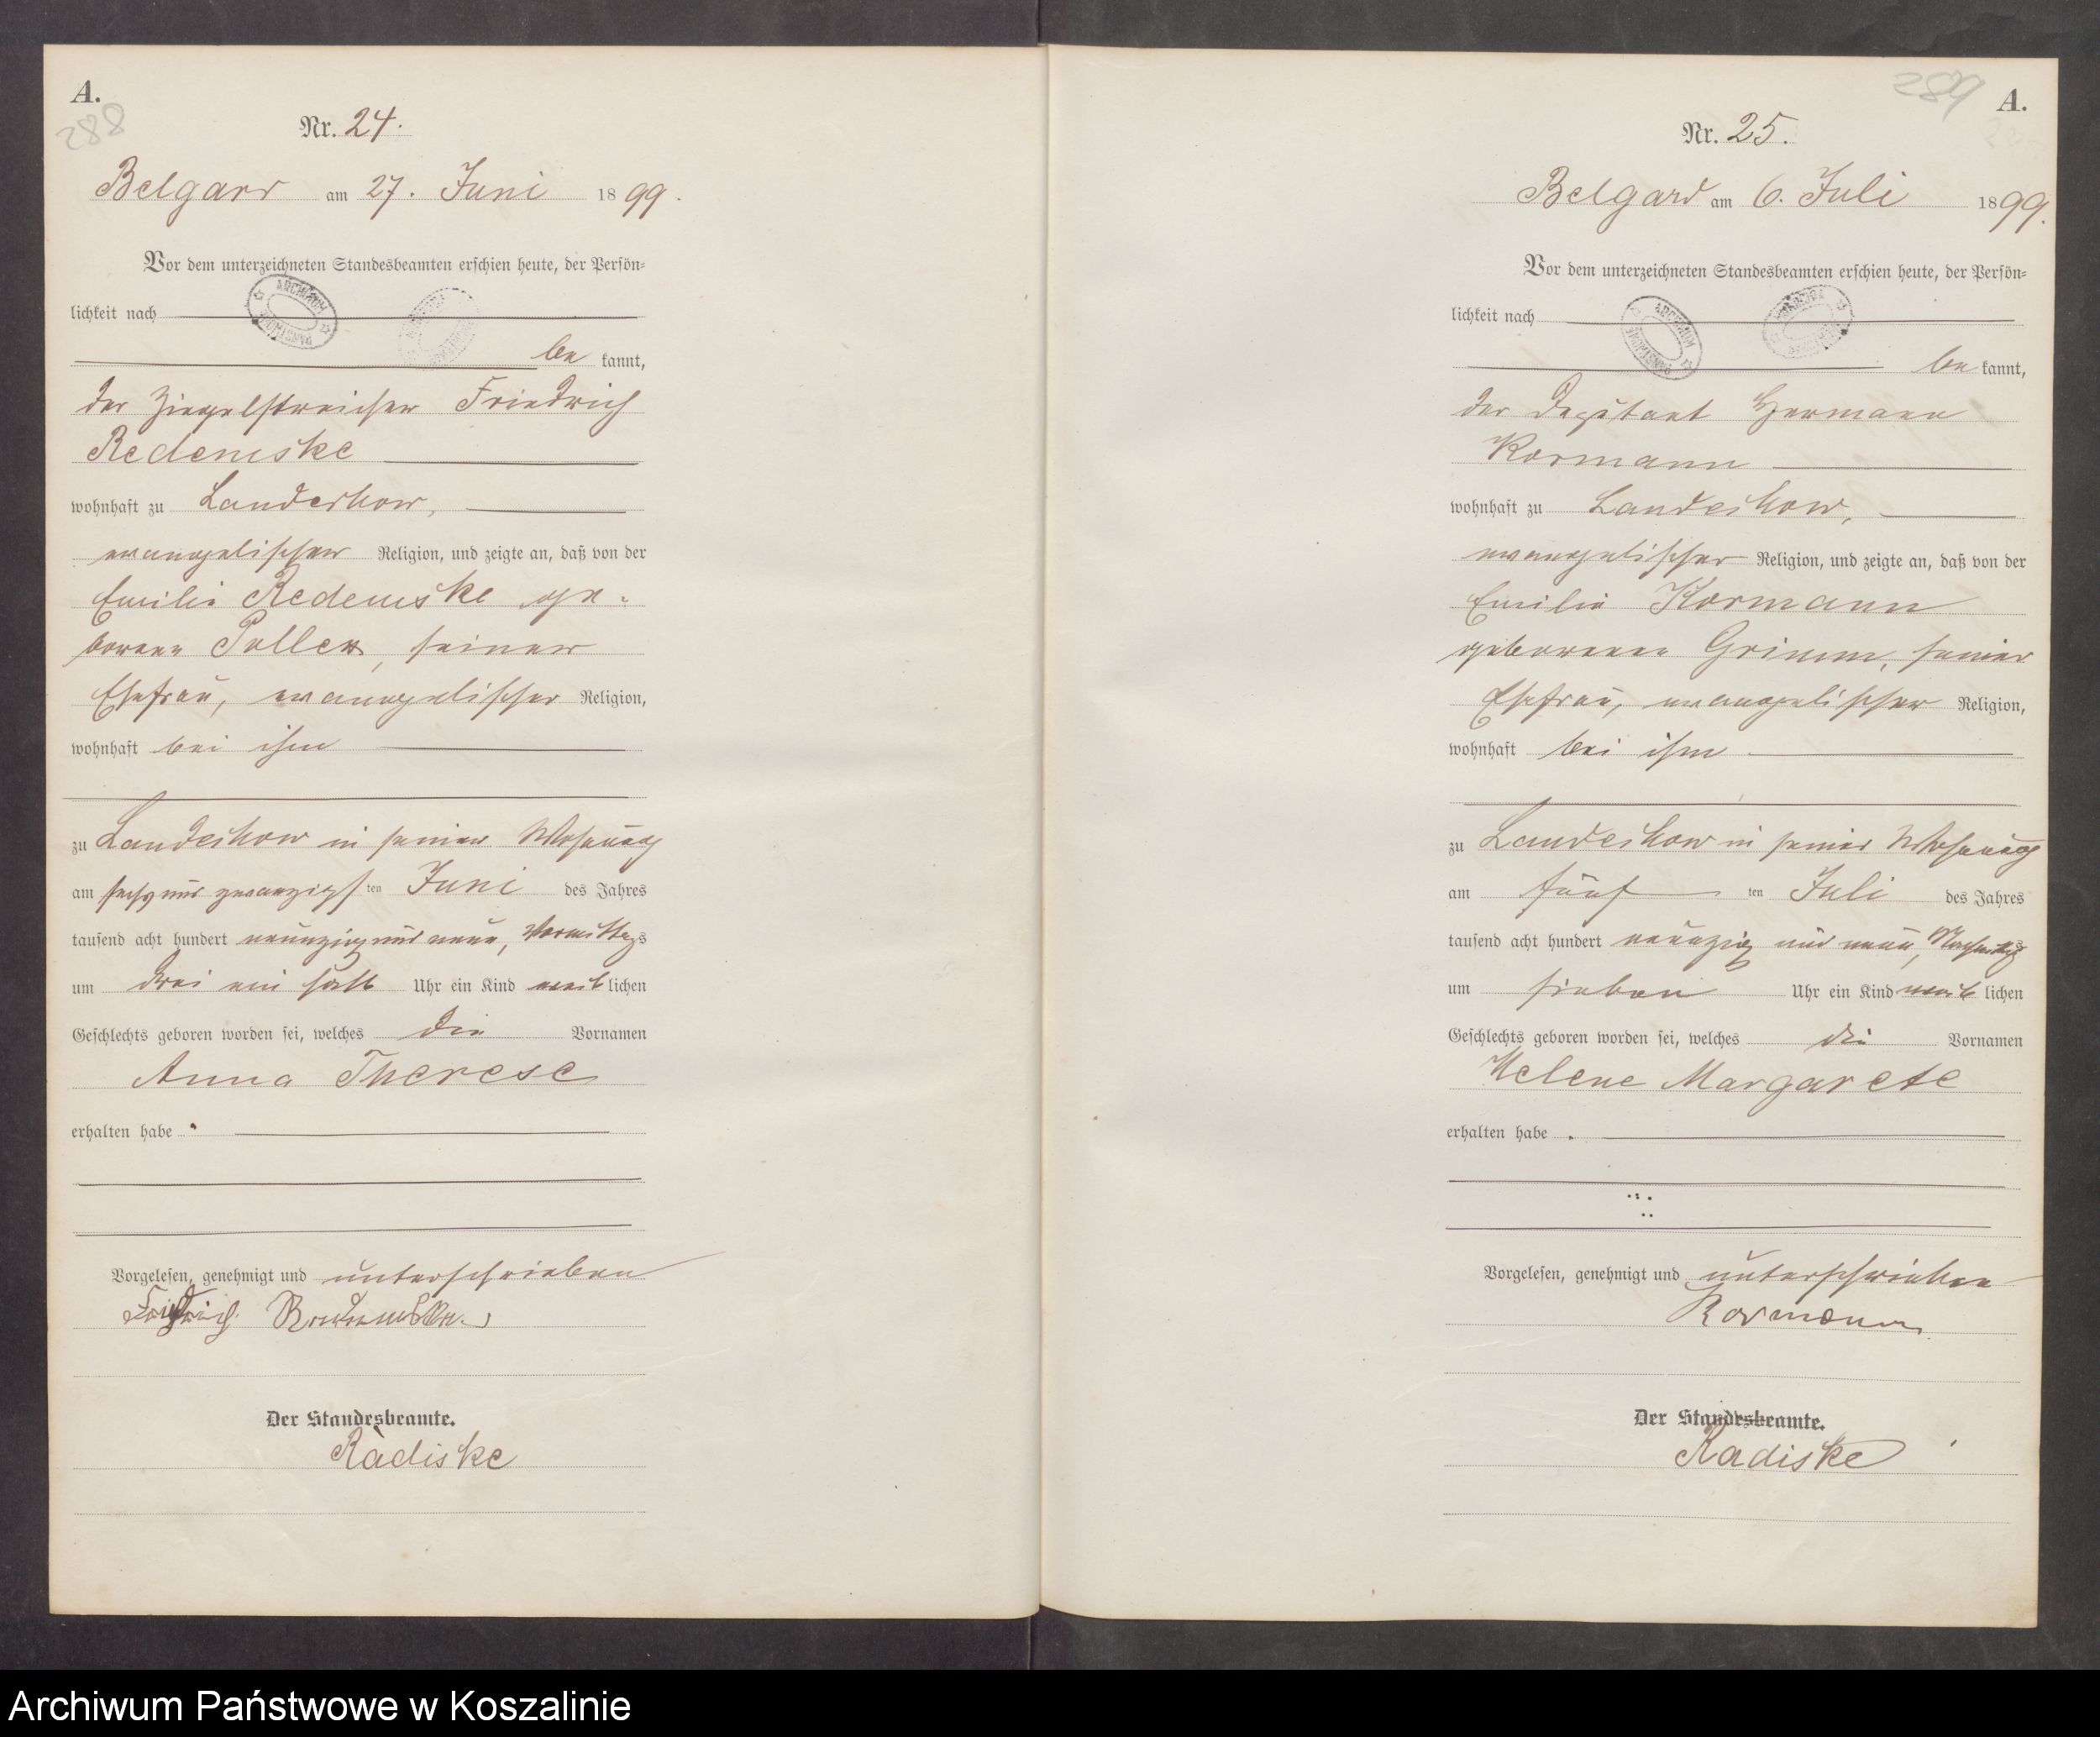 A.
288
Nr. 24.
Belgard am 27. Juni 1899.
Vor dem unterzeichneten Standesbeamten erschien heute, der Persön-
lichkeit nach
be kannt,
der Ziegelstreicher Friedrich
Redemske
wohnhaft zu Landechow,
evangelischer Religion, und zeigte an, daß von der
Emilie Redemske ge-
borene Poller, seiner
Ehefrau, evangelischer Religion,
wohnhaft bei ihm
zu Landechow in seiner Wohnung
am sechs und zwanzigsten Juni des Jahres
tausend acht hundert neunzig und neun, Vormittags
um drei ein halb Uhr ein Kind weiblichen
Geschlechts geboren worden sei, welches die Vornamen
Anna Therese
erhalten habe.
Vorgelesen, genehmigt und unterschrieben
Friedrich Redemske.
Der Standesbeamte.
Radiske
289
A.
Nr. 25.
Belgard am 6. Juli 1899.
Vor dem unterzeichneten Standesbeamten erschien heute, der Persön-
lichkeit nach
be kannt,
der Deputant Hermann
Kormann
wohnhaft zu Landechow,
evangelischer Religion, und zeigte an, daß von der
Emilie Kormann
geborenen Grimm, seiner
Ehefrau, evangelischer Religion,
wohnhaft bei ihm
zu Landechow in seiner Wohnung
am fünf ten Juli des Jahres
tausend acht hundert neunzig und neun, Nachmittags
um sieben Uhr ein Kind weiblichen
Geschlechts geboren worden sei, welches die Vornamen
Helene Margarete
erhalten habe.
Vorgelesen, genehmigt und unterschrieben
Kormann
Der Standesbeamte.
Radiske
Archiwum Państwowe w Koszalinie